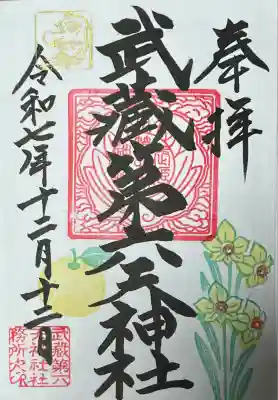 奉拝
武藏第六天神社
令和七年十二月十二日
武蔵第六
天神社社
務所之印